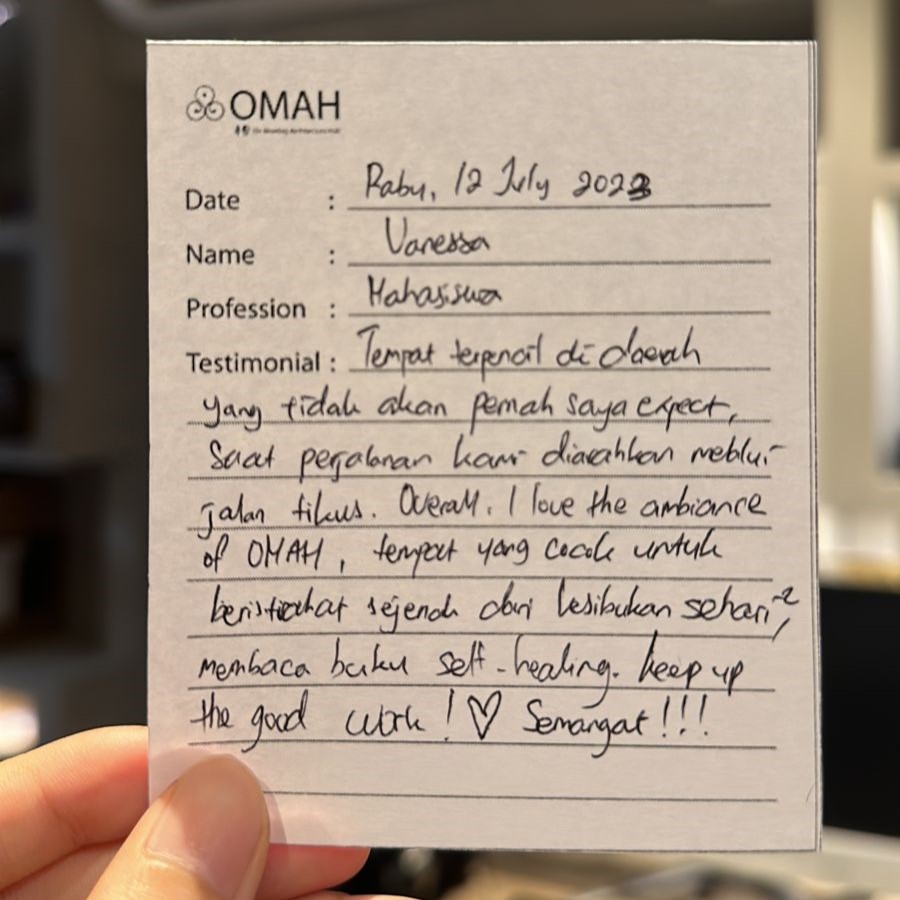 OMAH
Date : Rabu, 12 July 2023
Name : Vanessa
Profession : Mahasiswa
Testimonial : Tempat terpencil di daerah
yang tidak akan pernah saya expect,
Saat perjalanan kami diarahkan meblui
jalan tikus. Overall, I love the ambiance
of OMAH, tempat yang cocok untuk
beristirahat sejenak dari kesibukan sehari-2,
membaca buku self-healing. keep up
the good work! ♡ Semangat!!!